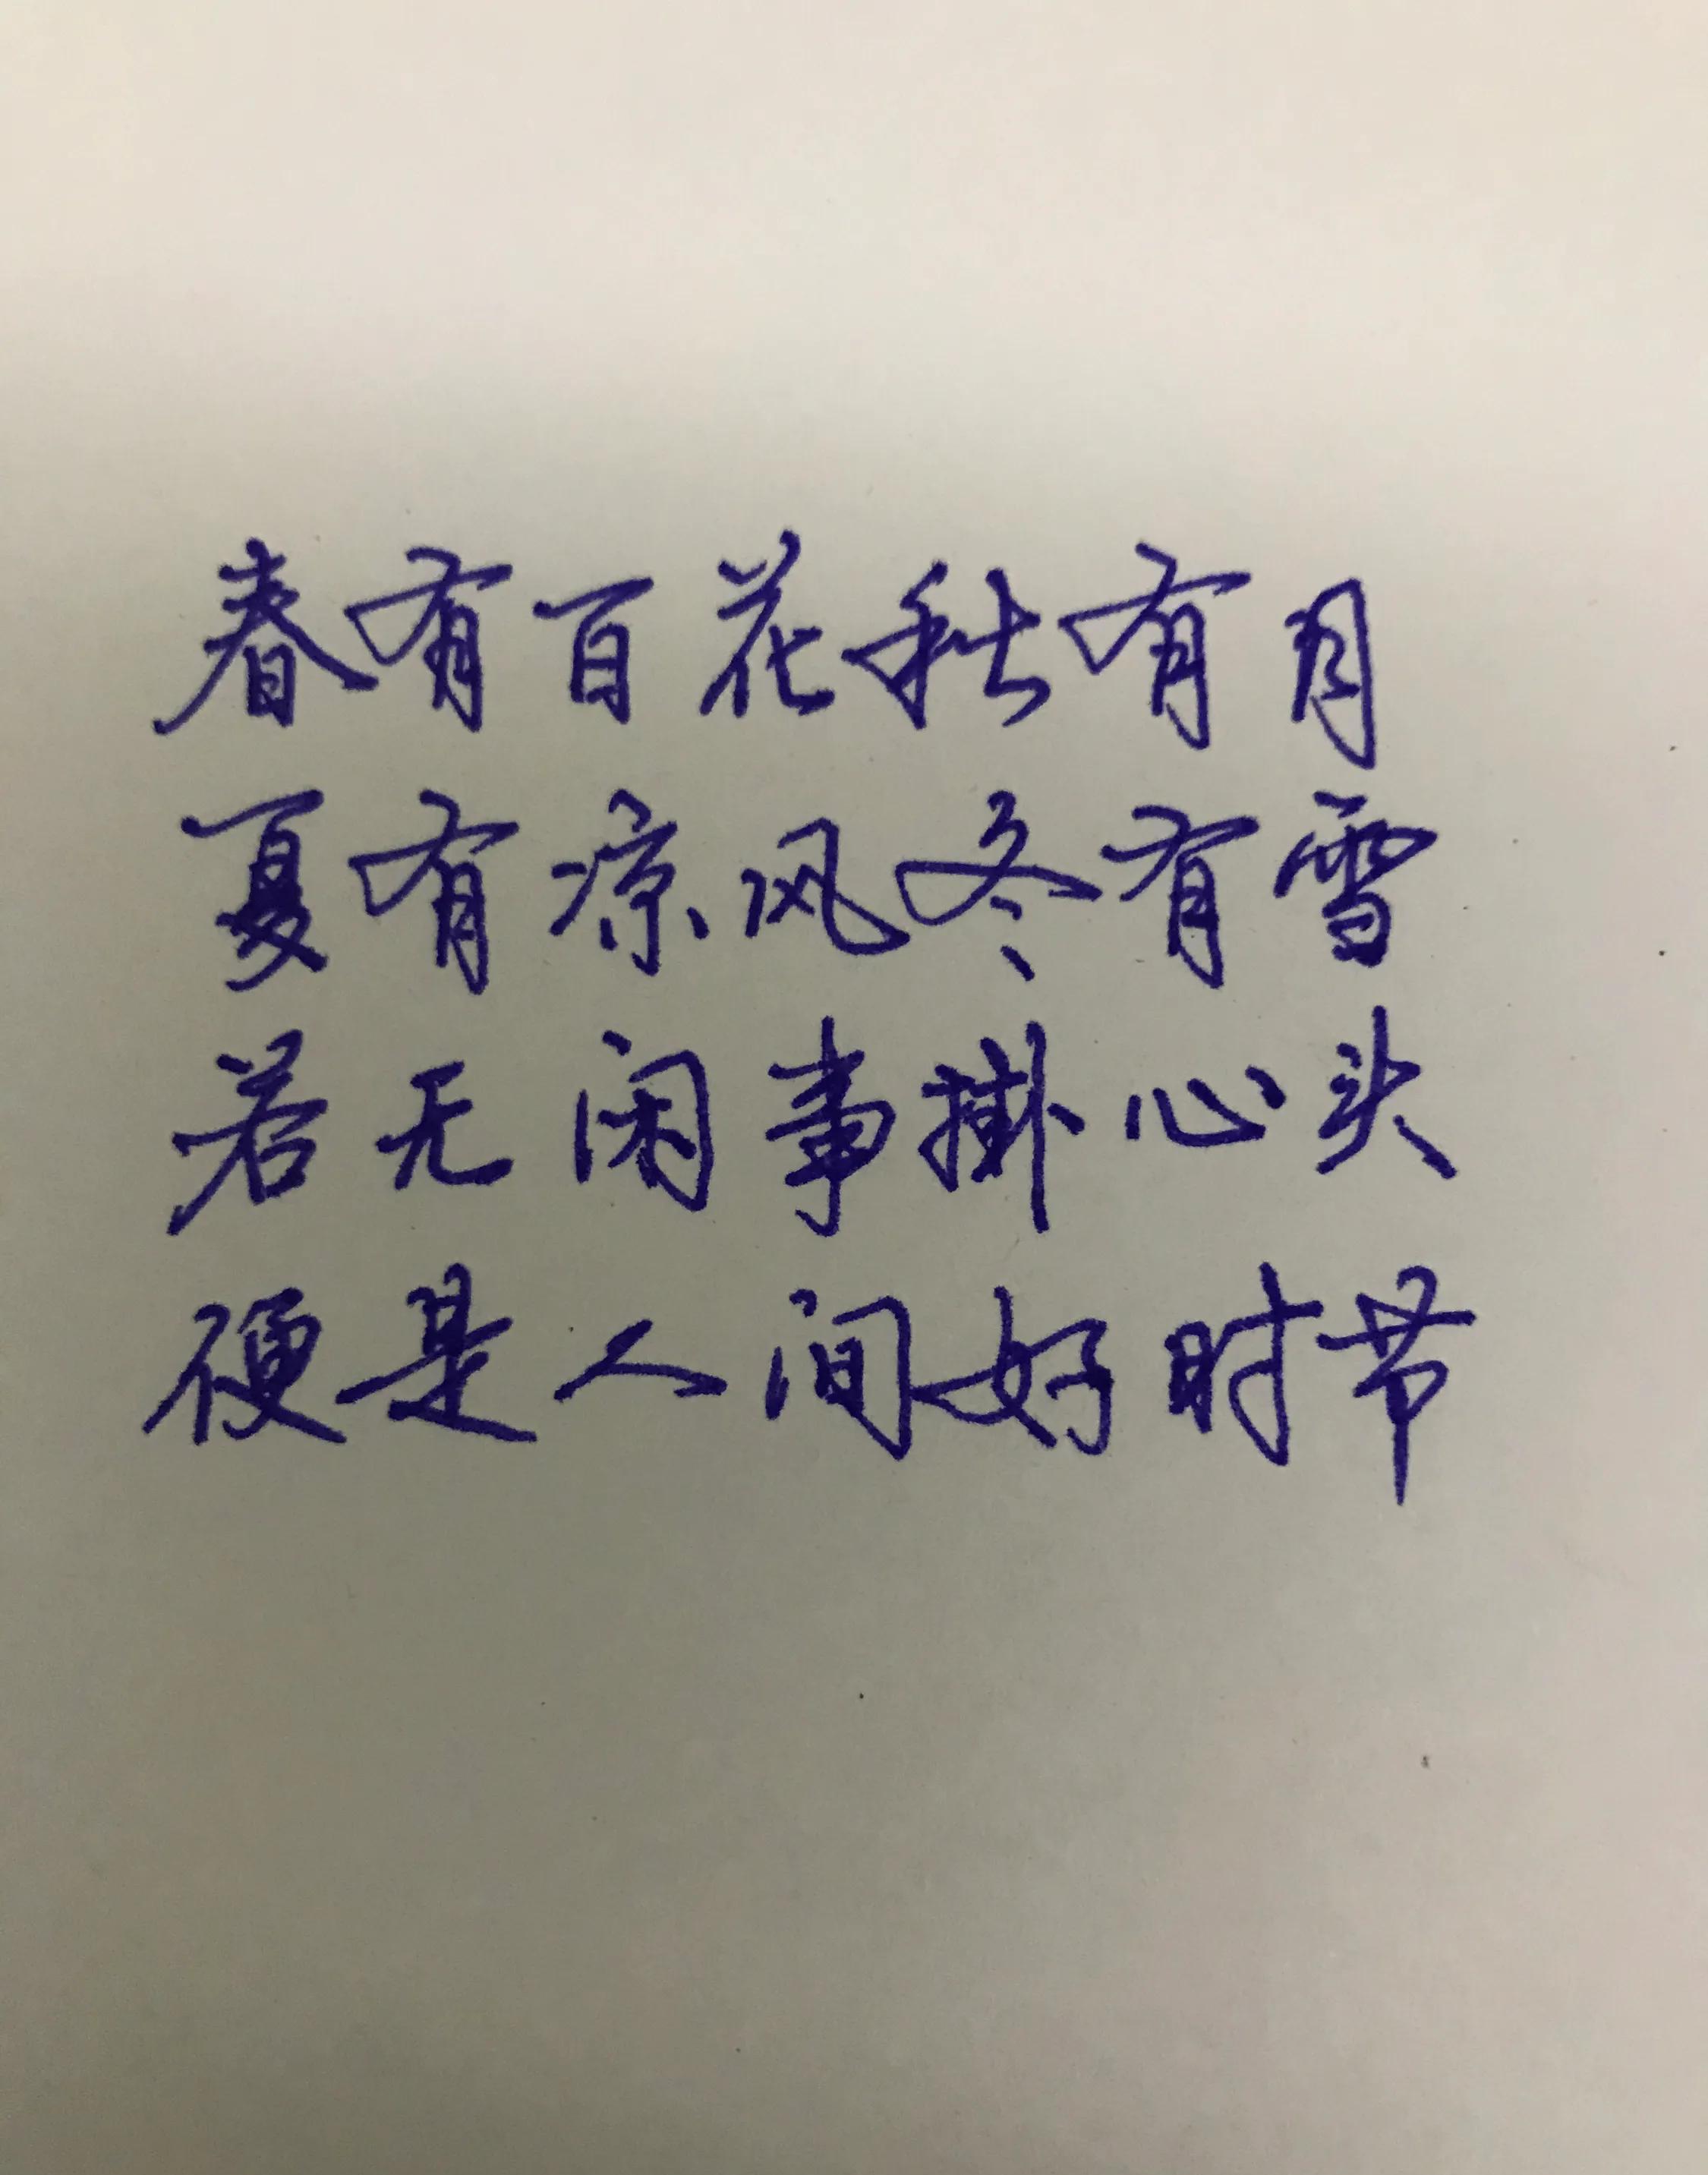 春有百花秋有月
夏有凉风冬有雪
若无闲事掛心头
便是人间好时节